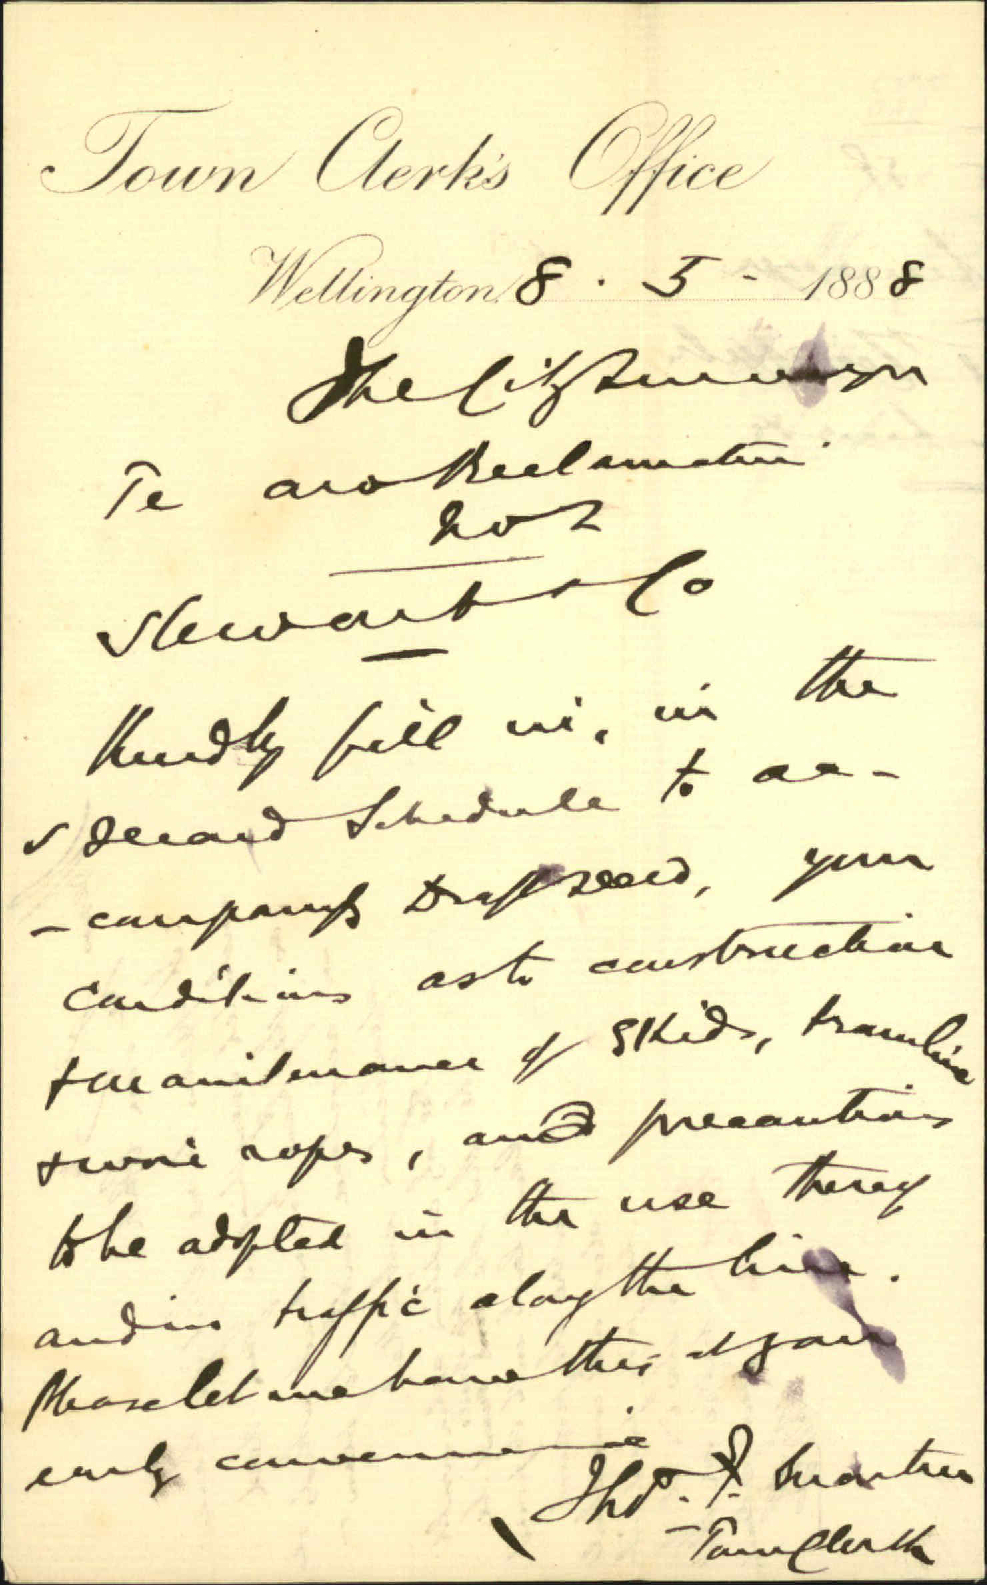 Town Clerk's Office
Wellington 8 . 5 - 1888
The City Surveyor
Te aro Reclamation
No 2
Stewart & Co
Kindly fill in, in the
second Schedule to ac-
-company Draft deed, your
conditions as to construction
& maintenance of skids, tramline
& wire ropes, and precautions
to be adopted in the use thereof
and in traffic along the line.
Please let me have this at your
early convenience
Thos. F. Martin
- Town Clerk